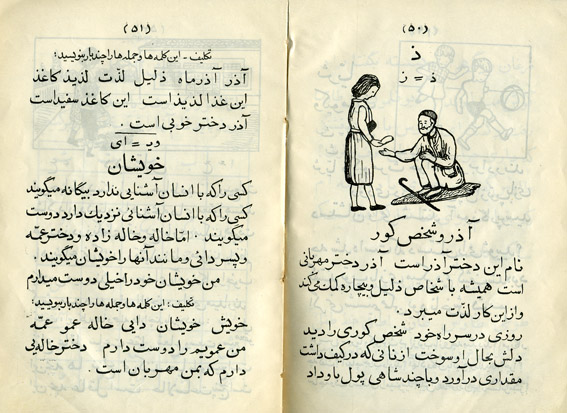 (۵۰)
ذ
ذ = ز
آذر و شخص کور
نام این دختر آذر است آذر دختر مهربانی
است همیشه با شخاص ذلیل و بیچاره کمک می‌کند
و از این کار لذّت میبرد.
روزی در سر راه خود شخص کوری را دید
دلش بحال او سوخت از نانی که در کیف داشت
مقداری در آورد و با چند شاهی پول با و داد
(۵۱)
تکلیف - این کلمه ها و جمله ها را چند بار بنویسید:
آذر آذرماه ذلیل لذّت لذیذ کاغذ
این غذا لذیذ است این کاغذ سفید است
آذر دختر خوبی است.
ویـ = ای
خویشان
کسی را که با انسان آشنایی ندارد بیگانه میگویند
کسی را که با انسان آشنائی نزدیک دارد دوست
میگویند. امّا خاله و خاله زاده و دختر عمّه
و پسر دائی و مانند آنها را خویشان میگویند.
من خویشان خود را خیلی دوست میدارم
تکلیف: این کلمه ها و جمله ها را چند بار بنویسید:
خویش خویشان دایی خاله عمو عمّه
من عمویم را دوست دارم دختر خاله یی
دارم که بمن مهربان است.